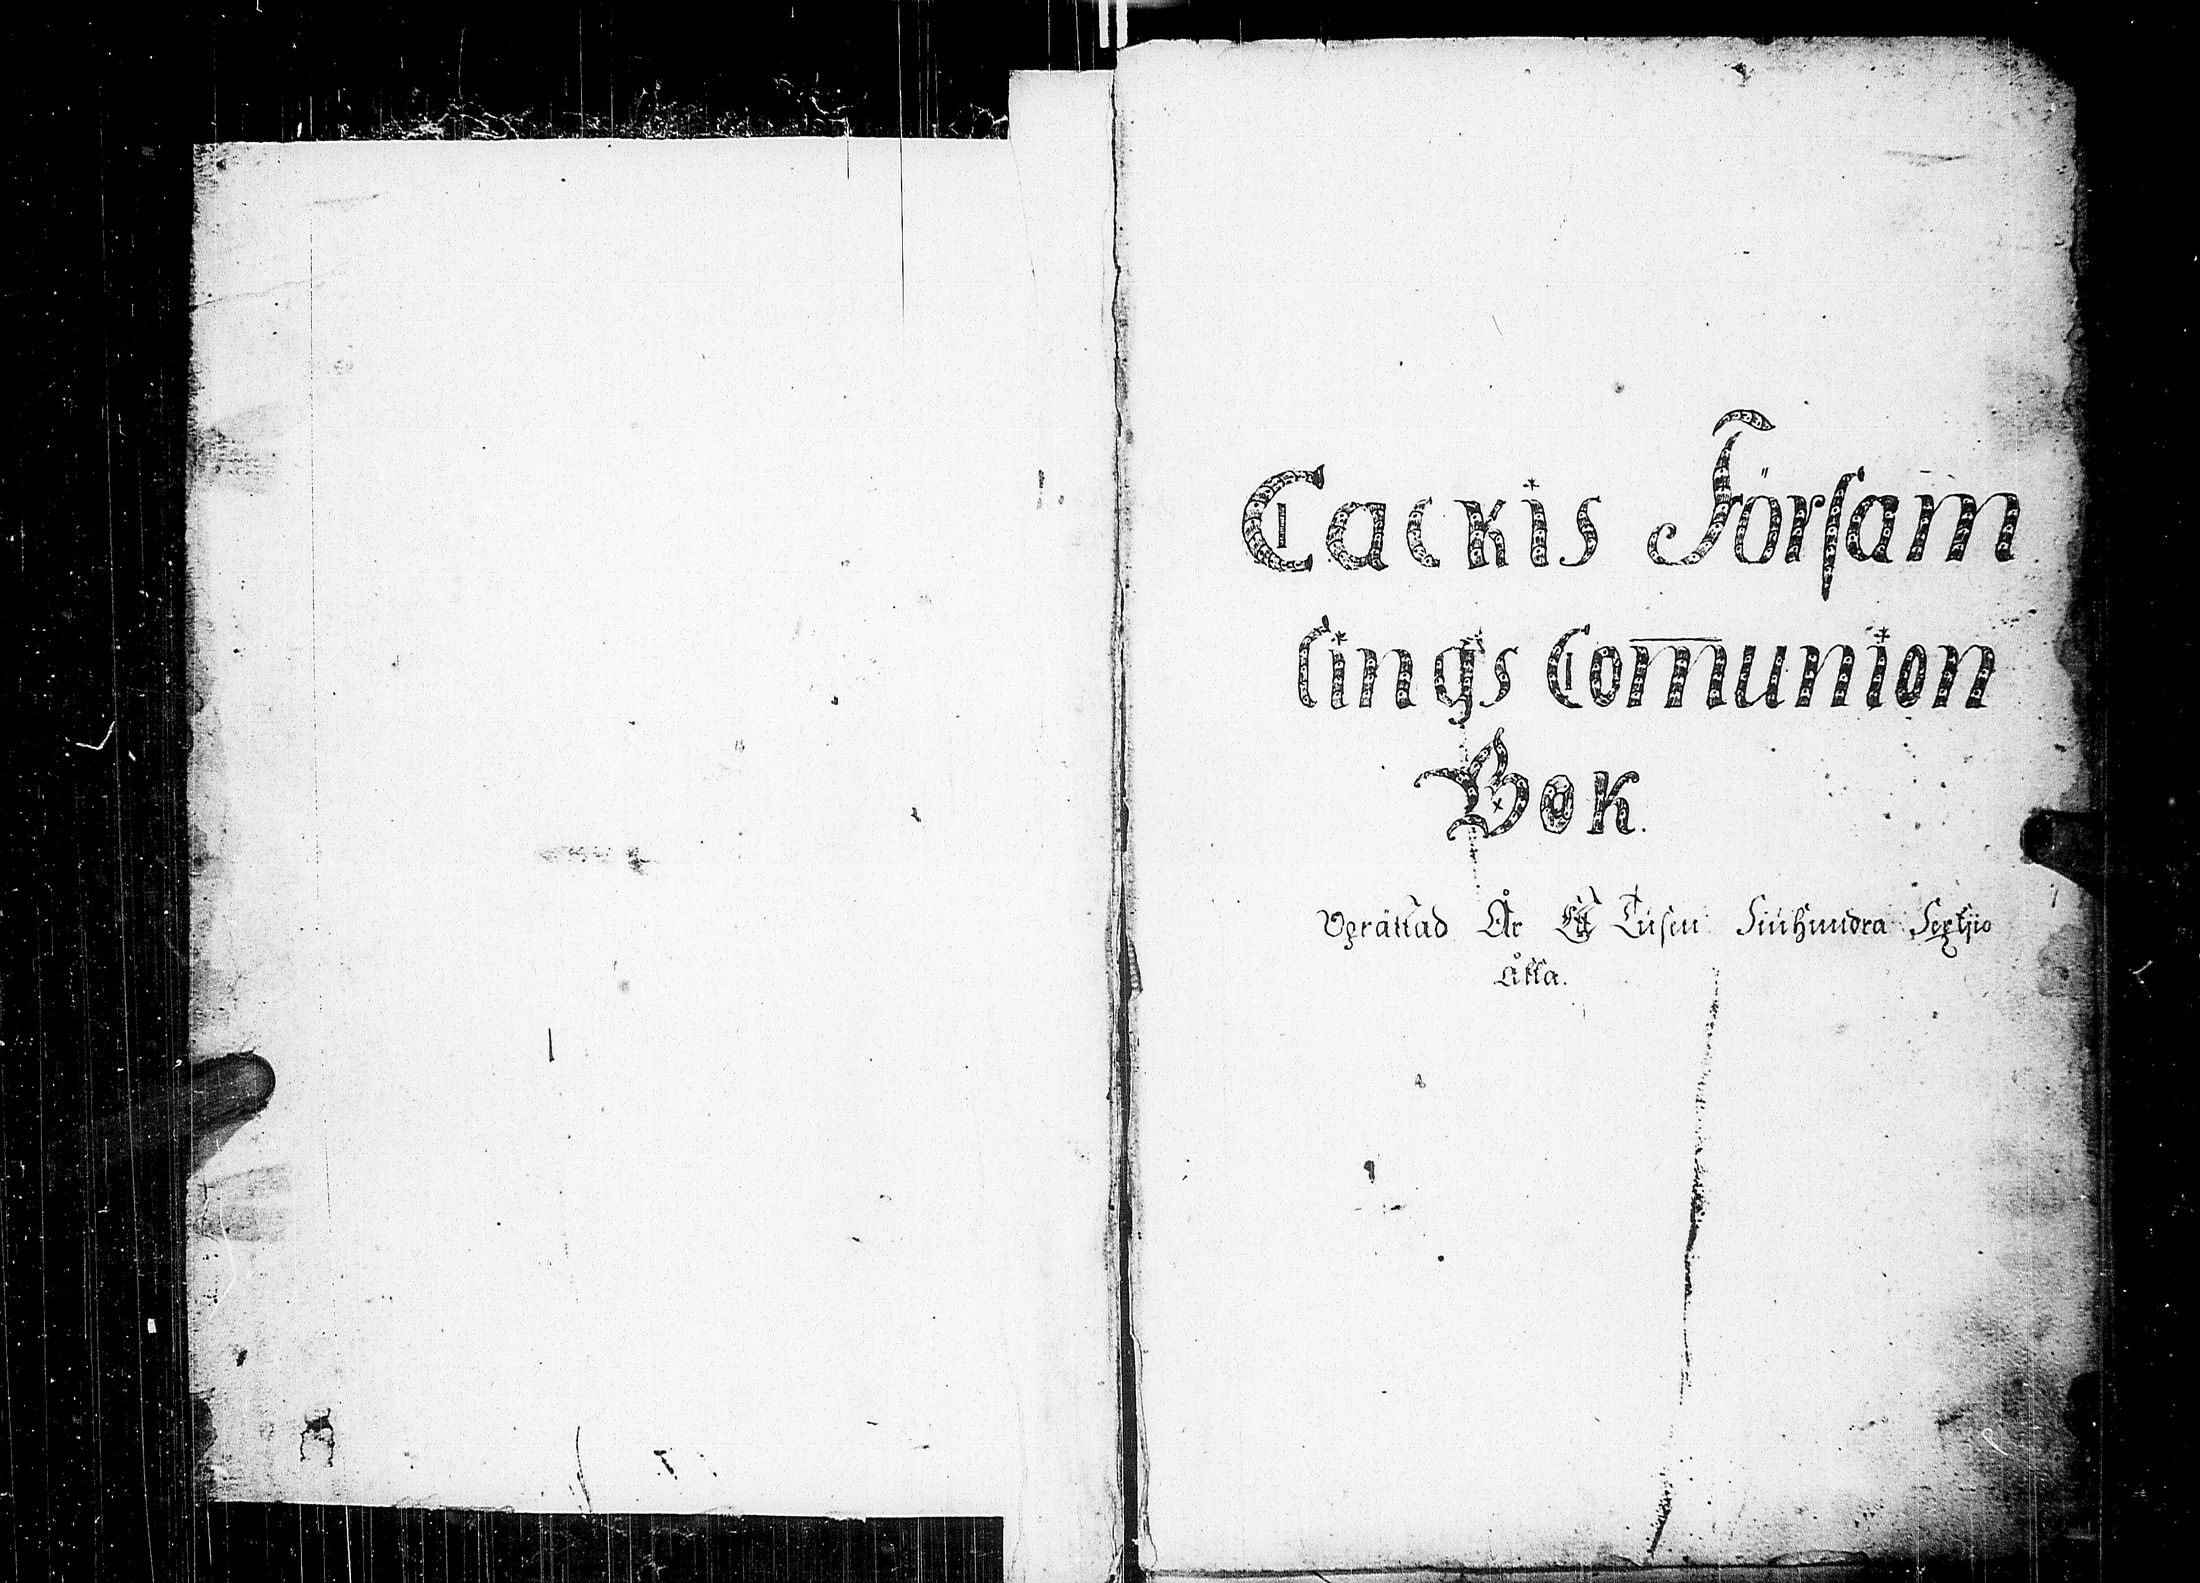 Cackis Församlings
lings Com̅union
Bok.
Vprättad År Ett Tusen Siuhundra Sextjio
Åtta.